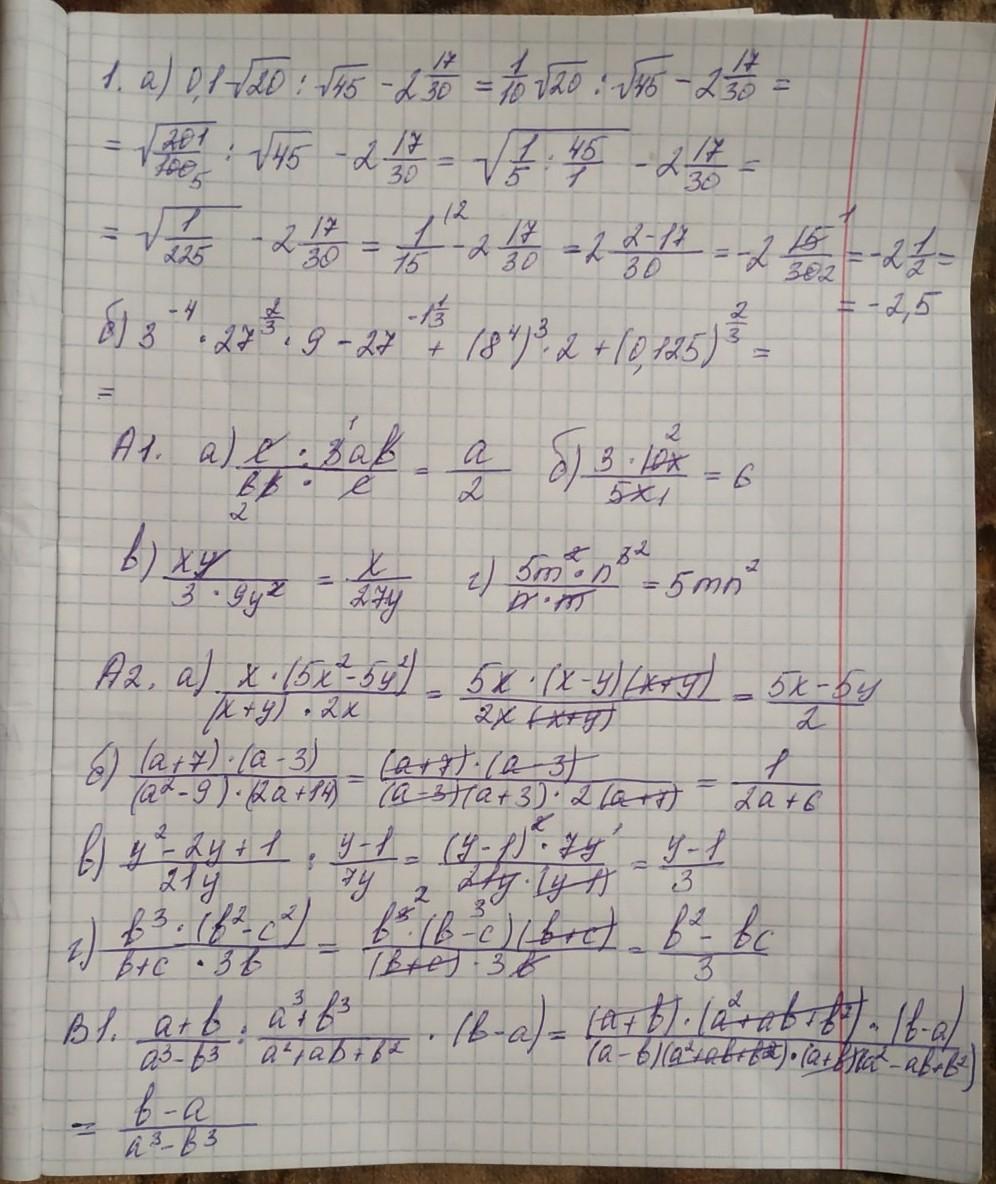 1. а) 0,1√20 : √45 - 2 17/30 = 1/10 √20 : √45 - 2 17/30 =
= √(20 1/100 5) : √45 - 2 17/30 = √(1/5 : 45/1) - 2 17/30 =
= √(1/225) - 2 17/30 = 1/15 (2 - 2 17/30 = 2 (2-17)/30 = -2 15 1/30 2 = -2 1/2 =
= -2,5
б) 3^-4 · 27^(2/3) · 9 - 27^(-1 1/3) + (8^4)^3 · 2 + (0,125)^(2/3) =
=
А1. а) (c · 3 1 ab)/(6b 2 · c) = a/2 б) (3 · 10x 2)/(5x 1) = 6
в) xy/(3 · 9y^2) = x/(27y) г) (5m^2 · n^3 2)/(n · m) = 5mn^2
А2. а) (x · (5x^2 - 5y^2))/((x+y) · 2x) = (5x · (x-y)(x+y))/(2x (x+y)) = (5x-5y)/2
б) ((a+7) · (a-3))/((a^2-9) · (2a+14)) = ((a+7) · (a-3))/((a-3)(a+3) · 2(a+7)) = 1/(2a+6)
в) (y^2 - 2y + 1)/(21y) : (y-1)/(7y) = ((y-1)^2 · 7y 1)/(21y · (y-1) 3) = (y-1)/3
г) (b^3 · (b^2-c^2))/(b+c · 3b) = (b^3 2 · (b-c)(b+c))/((b+c) · 3b) = (b^2 - bc)/3
В1. (a+b)/(a^3-b^3) : (a^3+b^3)/(a^2+ab+b^2) · (b-a) = ((a+b) · (a^2+ab+b^2) · (b-a))/((a-b)(a^2+ab+b^2) · (a+b)(a^2-ab+b^2))
= (b-a)/(a^3-b^3)